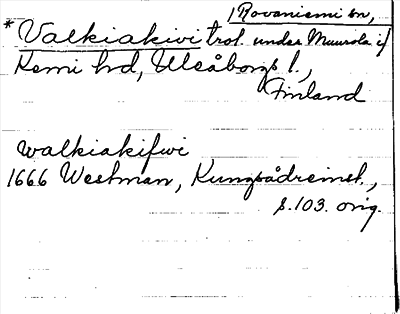 Rovaniemi sn,
* Valkiakivi trol. under Muurola i/
Kemi hd, Uleåborgs l.,
Finland
Walkiakifwi
1666 Westman, Kungsådreinst.,
s. 103. orig.